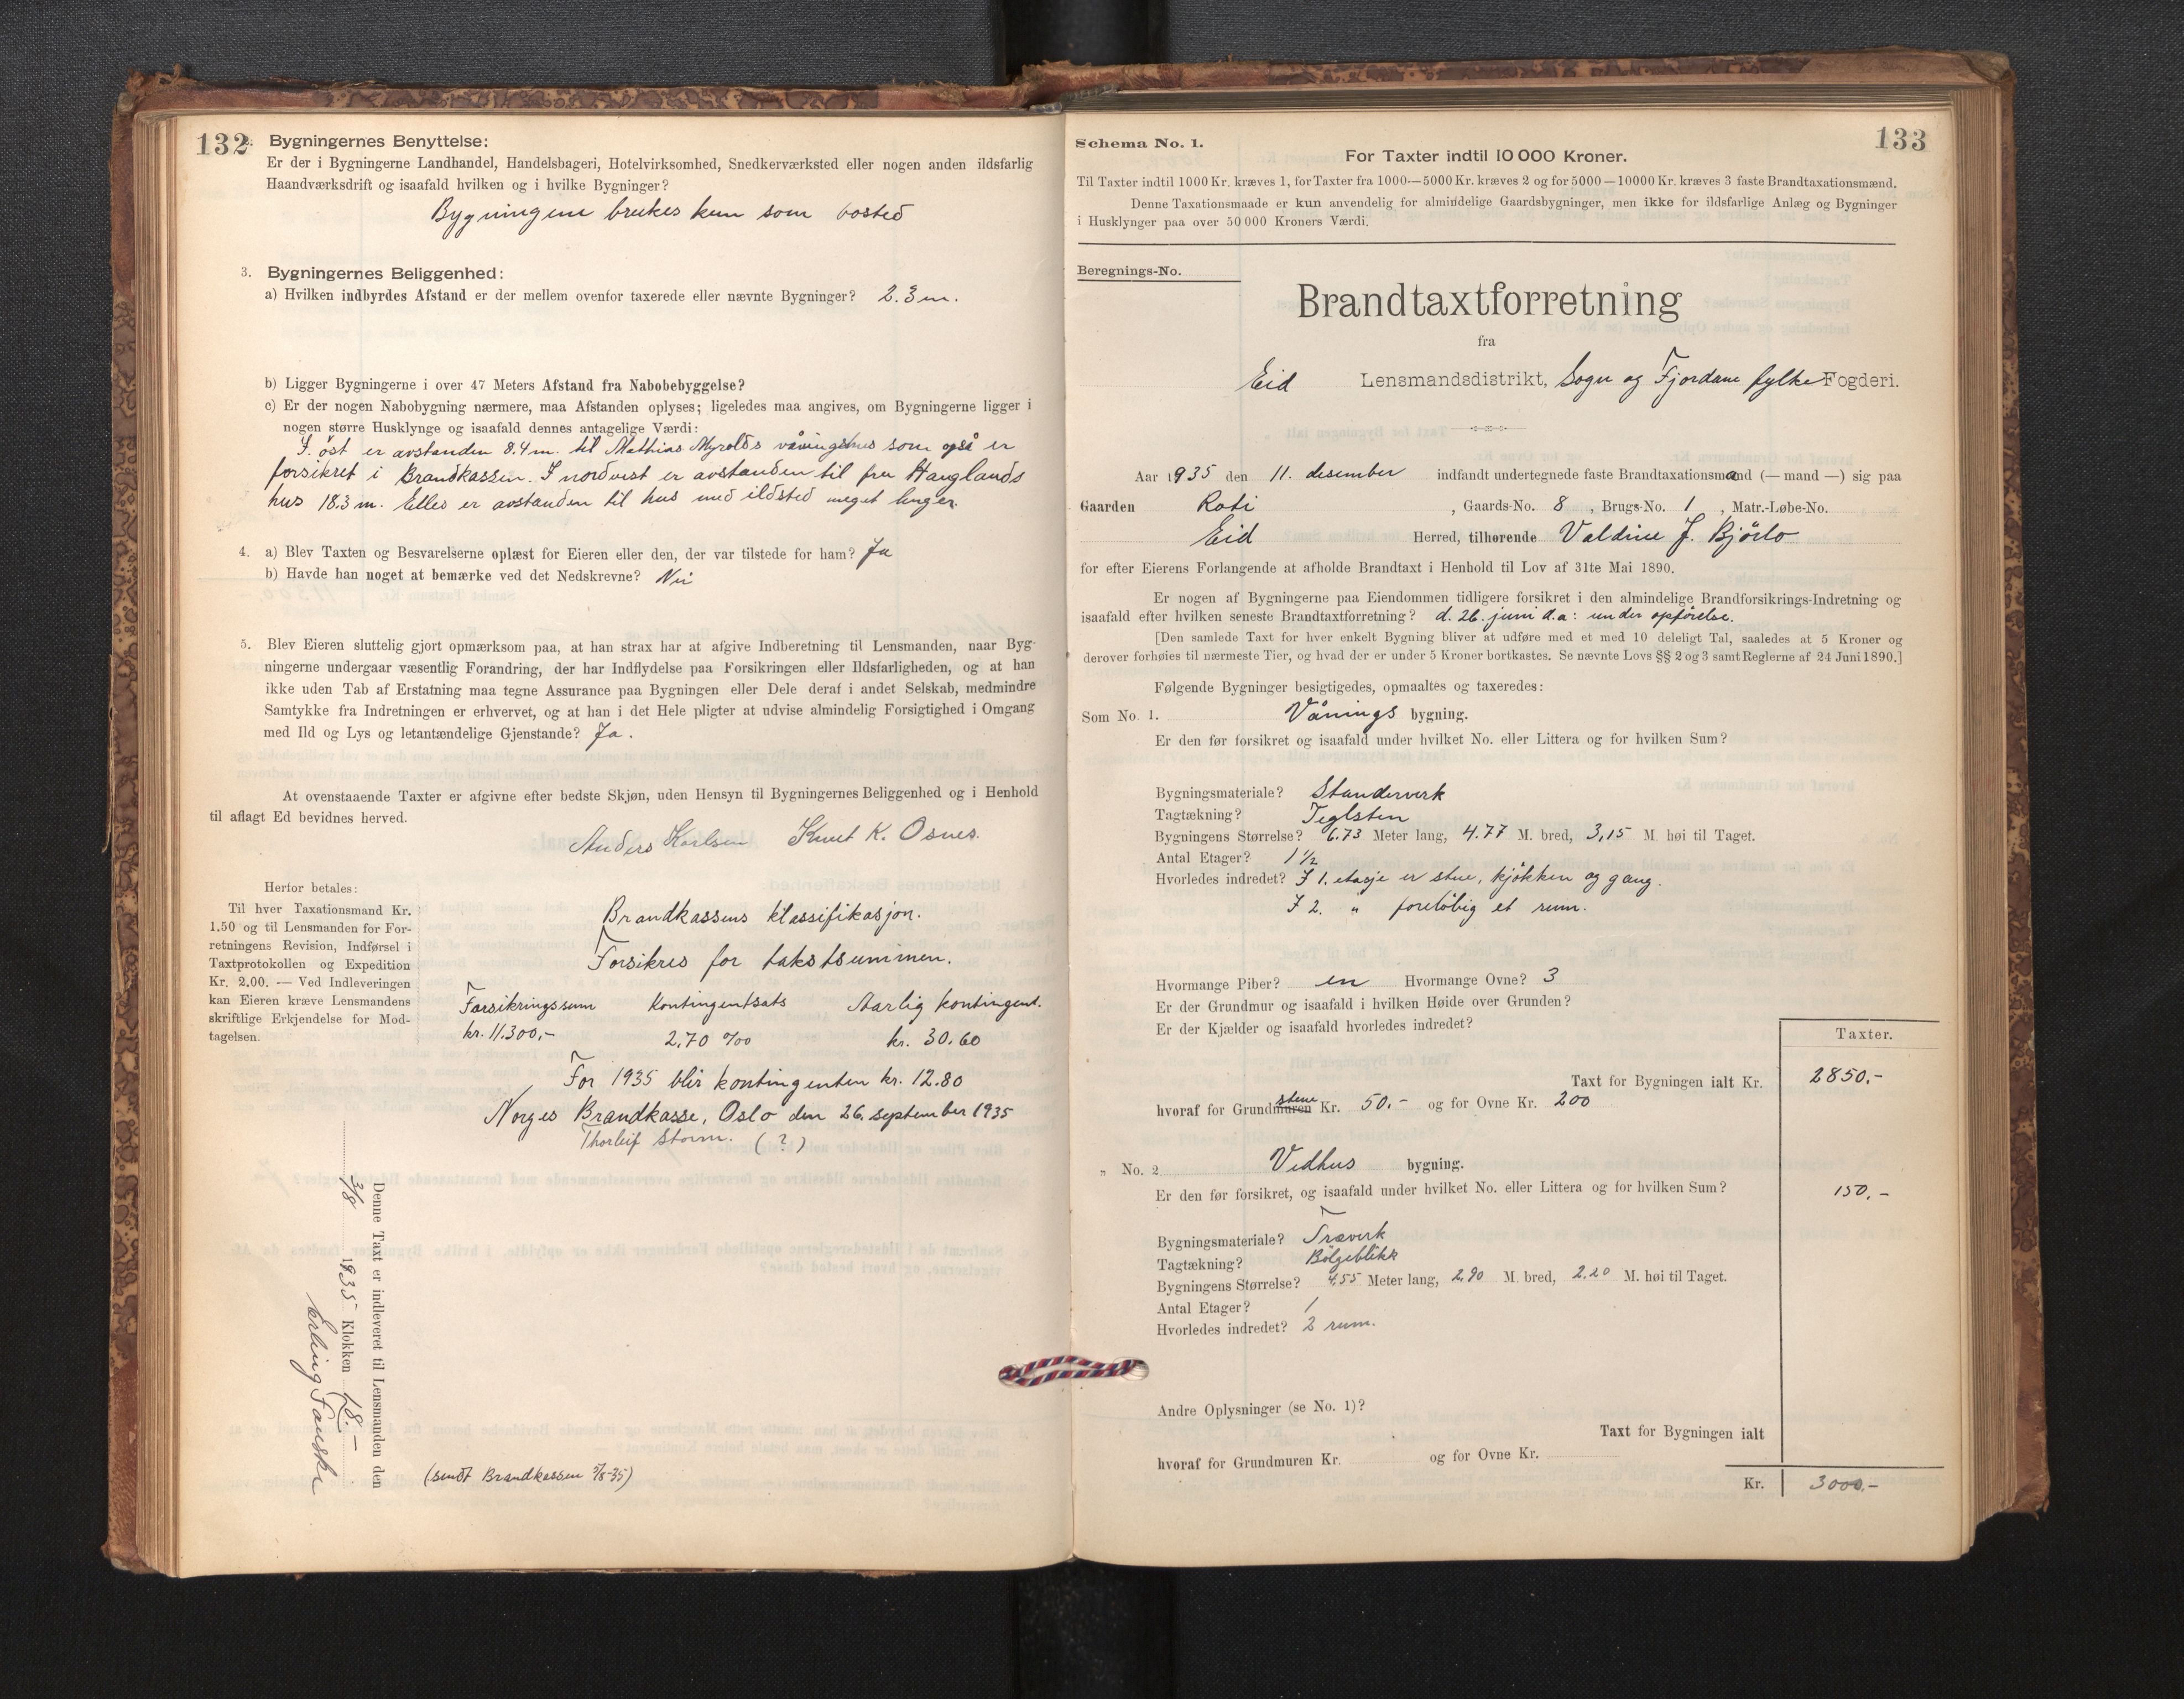 132
2. Bygningernes Benyttelse:
Er der i Bygningerne Landhandel, Handelsbageri, Hotelvirksomhed, Snedkerværksted eller nogen anden ildsfarlig
Haandværksdrift og isaafald hvilken og i hvilke Bygninger?
Bygningene brukes kun som bosted
3. Bygningernes Beliggenhed:
a) Hvilken indbyrdes Afstand er der mellem ovenfor taxerede eller nævnte Bygninger? 2.3 m.
b) Ligger Bygningerne i over 47 Meters Afstand fra Nabobebyggelse?
c) Er der nogen Nabobygning nærmere, maa Afstanden oplyses; ligeledes maa angives, om Bygningerne ligger i
nogen større Husklynge og isaafald dennes antagelige Værdi:
I. öst er avstanden 8.4 m. til Mathias Myrolds våningshus som også er
forsikret i Brandkassen. I nordvest er avstanden til fru Hauglands
hus 18.3 m. Elles er avstanden til hus med ildsted meget lenger.
4. a) Blev Taxten og Besvarelserne oplæst for Eieren eller den, der var tilstede for ham? Ja
b) Havde han noget at bemærke ved det Nedskrevne? Nei
5. Blev Eieren sluttelig gjort opmærksom paa, at han strax har at afgive Indberetning til Lensmanden, naar Byg-
ningerne undergaar væsentlig Forandring, der har Indflydelse paa Forsikringen eller Ildsfarligheden, og at han
ikke uden Tab af Erstatning maa tegne Assurance paa Bygningen eller Dele deraf i andet Selskab, medmindre
Samtykke fra Indretningen er erhvervet, og at han i det Hele pligter at udvise almindelig Forsigtighed i Omgang
med Ild og Lys og letantændelige Gjenstande? Ja.
At ovenstaaende Taxter er afgivne efter bedste Skjøn, uden Hensyn til Bygningernes Beliggenhed og i Henhold
til aflagt Ed bevidnes herved.
Anders Karlsen Knut K. Osnes.
Herfor betales:
Til hver Taxationsmand Kr.
1.50 og til Lensmanden for For-
retningens Revision, Indførsel i
Taxtprotokollen og Expedition
Kr. 2.00. — Ved Indleveringen
kan Eieren kræve Lensmandens
skriftlige Erkjendelse for Mod-
tagelsen.
Brandkassens klassifikasjon.
Forsikres for takstsummen.
Forsikringssum Kontingentsats Aarlig kontingent.
kr. 11.300,- 2,70 ‰ kr. 30.60
For 1935 blir kontingenten kr. 12.80
Norges Brandkasse, Oslo den 26. september 1935
Thorleif Storm. (?)
Denne Taxt er indleveret til Lensmanden den
3/8 1935 Klokken 18.-
Erling Fauske
(sendt Brandkassen 5/8-35)
133
Schema No. 1.
For Taxter indtil 10 000 Kroner.
Til Taxter indtil 1000 Kr. kræves 1, for Taxter fra 1000—5000 Kr. kræves 2 og for 5000—10000 Kr. kræves 3 faste Brandtaxationsmænd.
Denne Taxationsmaade er kun anvendelig for almindelige Gaardsbygninger, men ikke for ildsfarlige Anlæg og Bygninger
i Husklynger paa over 50 000 Kroners Værdi.
Beregnings-No.
Brandtaxtforretning
fra
Eid Lensmandsdistrikt, Sogn og Fjordane fylke Fogderi.
Aar 1935 den 11. desember indfandt undertegnede faste Brandtaxationsmænd (— mand —) sig paa
Gaarden Roti, Gaards-No. 8, Brugs-No. 1, Matr.-Løbe-No.
Eid Herred, tilhørende Valdine J. Bjørlo
for efter Eierens Forlangende at afholde Brandtaxt i Henhold til Lov af 31te Mai 1890.
Er nogen af Bygningerne paa Eiendommen tidligere forsikret i den almindelige Brandforsikrings-Indretning og
isaafald efter hvilken seneste Brandtaxtforretning? d. 26. juni d.a: under opførelse.
[Den samlede Taxt for hver enkelt Bygning bliver at udføre med et med 10 deleligt Tal, saaledes at 5 Kroner og
derover forhøies til nærmeste Tier, og hvad der er under 5 Kroner bortkastes. Se nævnte Lovs §§ 2 og 3 samt Reglerne af 24 Juni 1890.]
Følgende Bygninger besigtigedes, opmaaltes og taxeredes:
Som No. 1. Vånings bygning.
Er den før forsikret og isaafald under hvilket No. eller Littera og for hvilken Sum?
Bygningsmateriale? Standerverk
Tagtækning? Teglsten
Bygningens Størrelse? 6.73 Meter lang, 4.77 M. bred, 3,15 M høi til Taget.
Antal Etager? 1 1/2
Hvorledes indredet? I 1. etasje er stue, kjökken og gang.
I 2. " foreløbig et rum.
Hvormange Piber? en Hvormange Ovne? 3
Er der Grundmur og isaafald i hvilken Høide over Grunden?
Er der Kjælder og isaafald hvorledes indredet?
Taxter.
Taxt for Bygningen ialt Kr. 2850.-
hvoraf for Grundmuren stene Kr. 50.- og for Ovne Kr. 200
" No. 2 Vedhus bygning.
Er den før forsikret, og isaafald under hvilket No. eller Littera og for hvilken Sum? 150.-
Bygningsmateriale? Treverk
Tagtækning? Bölgeblikk
Bygningens Størrelse? 4,55 Meter lang, 2,90 M. bred, 2.20 M. høi til Taget.
Antal Etager? 1
Hvorledes indredet? 2 rum.
Andre Oplysninger (se No. 1)?
Taxt for Bygningen ialt
hvoraf for Grundmuren Kr. og for Ovne Kr.
Kr. 3000.-